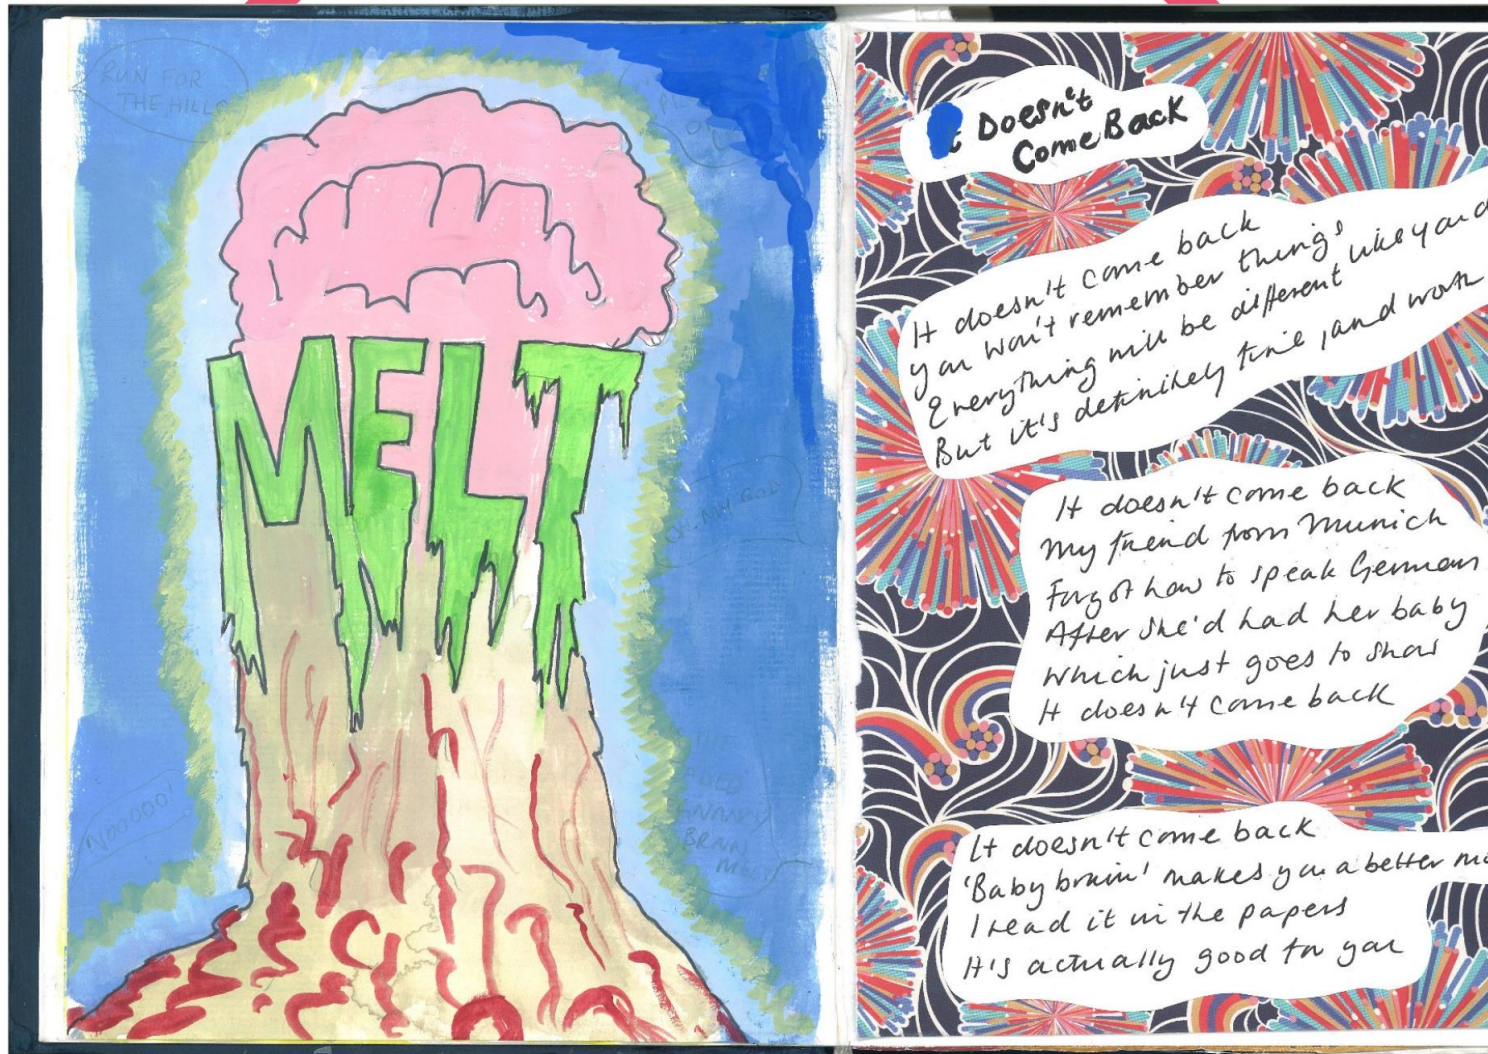 RUN FOR
THE HILLS
MELT
OH MY GOD
NOOOOO!
BRAIN
It Doesn't
Come Back
It doesn't come back
you won't remember things
Everything will be different
But it's definitely fine, and worth
It doesn't come back
My friend from Munich
Forgot how to speak German
After she'd had her baby
Which just goes to show
It doesn't come back
It doesn't come back
'Baby brain' makes you a better
I read it in the papers
It's actually good for you